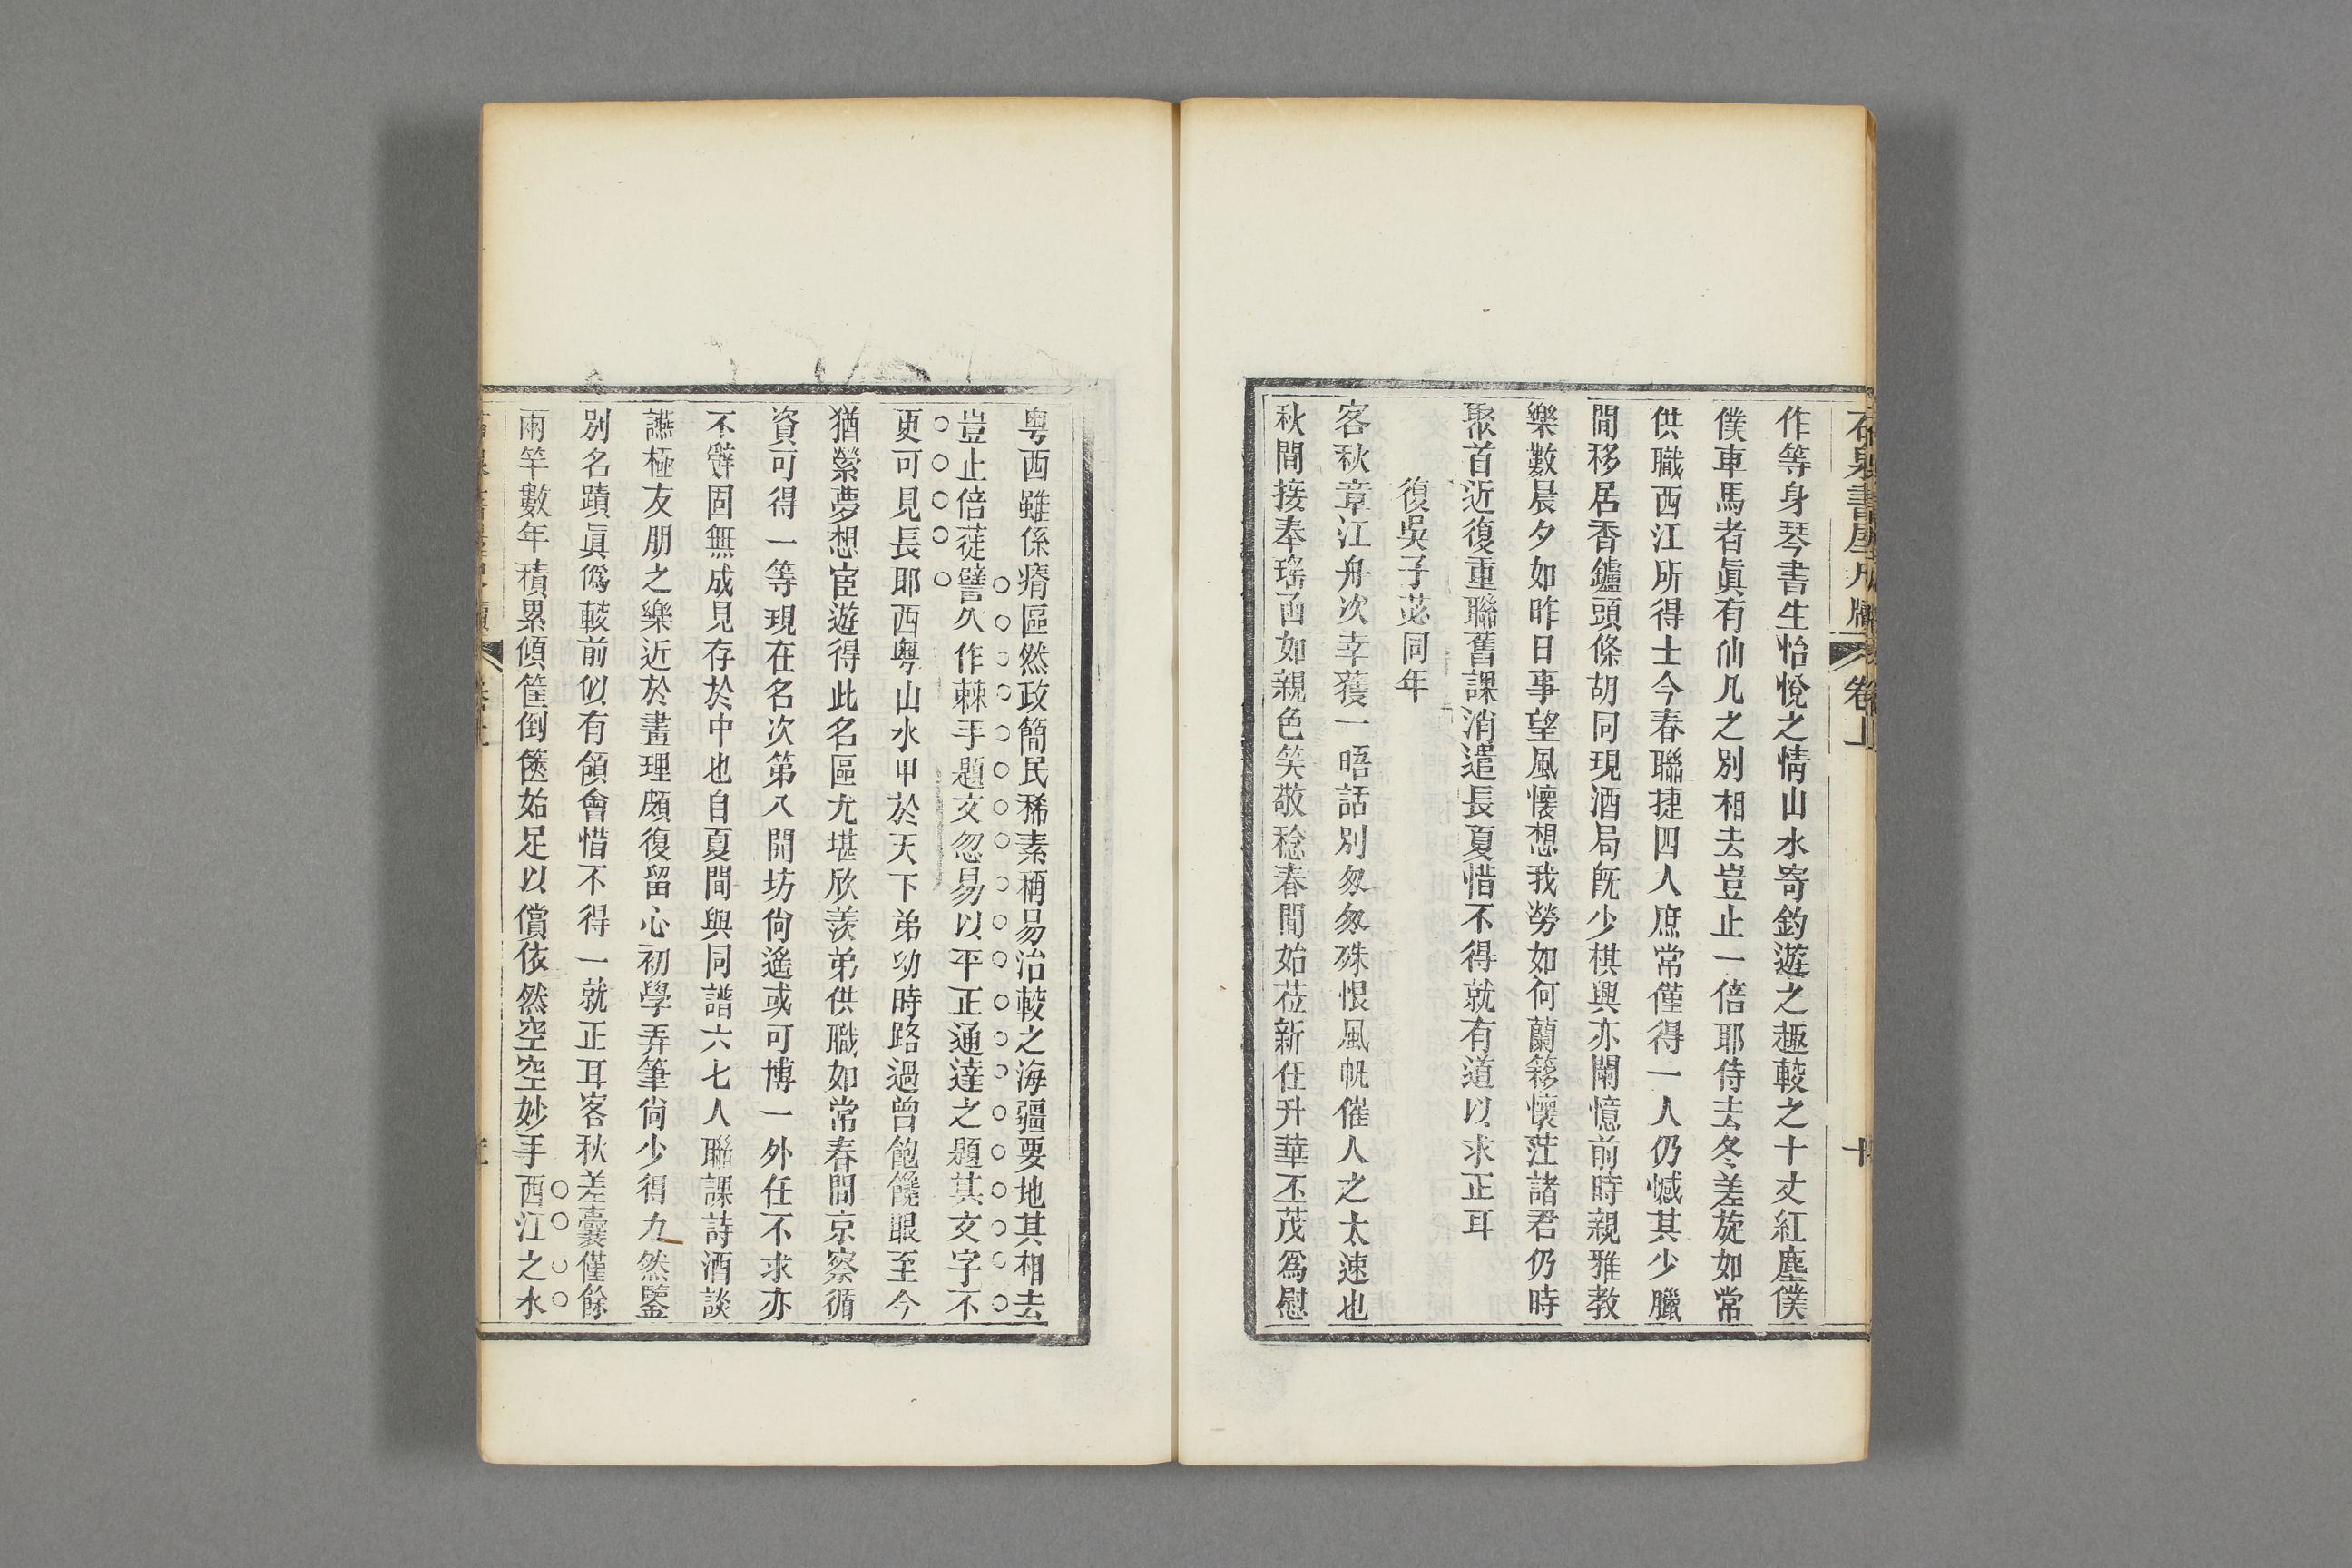 作等身琴書生怡悅之情山水寄釣遊之趣較之十丈紅塵僕
僕車馬者眞有仙凡之別相去豈止一倍耶侍去冬差旋如常
供職西江所得士今春聯捷四人庶常僅得一人仍憾其少臘
間移居香鑪頭條胡同現酒局旣少棋興亦闌憶前時親雅教
樂數晨夕如昨日事望風懷想我勞如何蘭簃懷茳諸君仍時
聚首近復重聯舊課消遣長夏惜不得就有道以求正耳
復吳子苾同年
客秋章江舟次幸獲一晤話別匆匆殊恨風帆催人之太速也
秋間接奉瑤函如親色笑敬稔春間始蒞新任升華丕茂爲慰
粤西雖係瘠區然政簡民稀素稱易治較之海疆要地其相去
豈止倍蓰譬久作棘手題文忽易以平正通達之題其文字不
更可見長耶西粤山水甲於天下弟幼時路過曾飽饞眼至今
猶縈夢想宦遊得此名區尤堪欣羨弟供職如常春間京察循
資可得一等現在名次第八開坊尙遙或可博一外任不求亦
不辭固無成見存於中也自夏間與同譜六七人聯課詩酒談
讌極友朋之樂近於畫理頗復留心初學弄筆尙少得力然鑒
別名蹟眞僞較前似有領會惜不得一就正耳客秋差囊僅餘
兩竿數年積累傾筐倒篋始足以償依然空空妙手西江之水